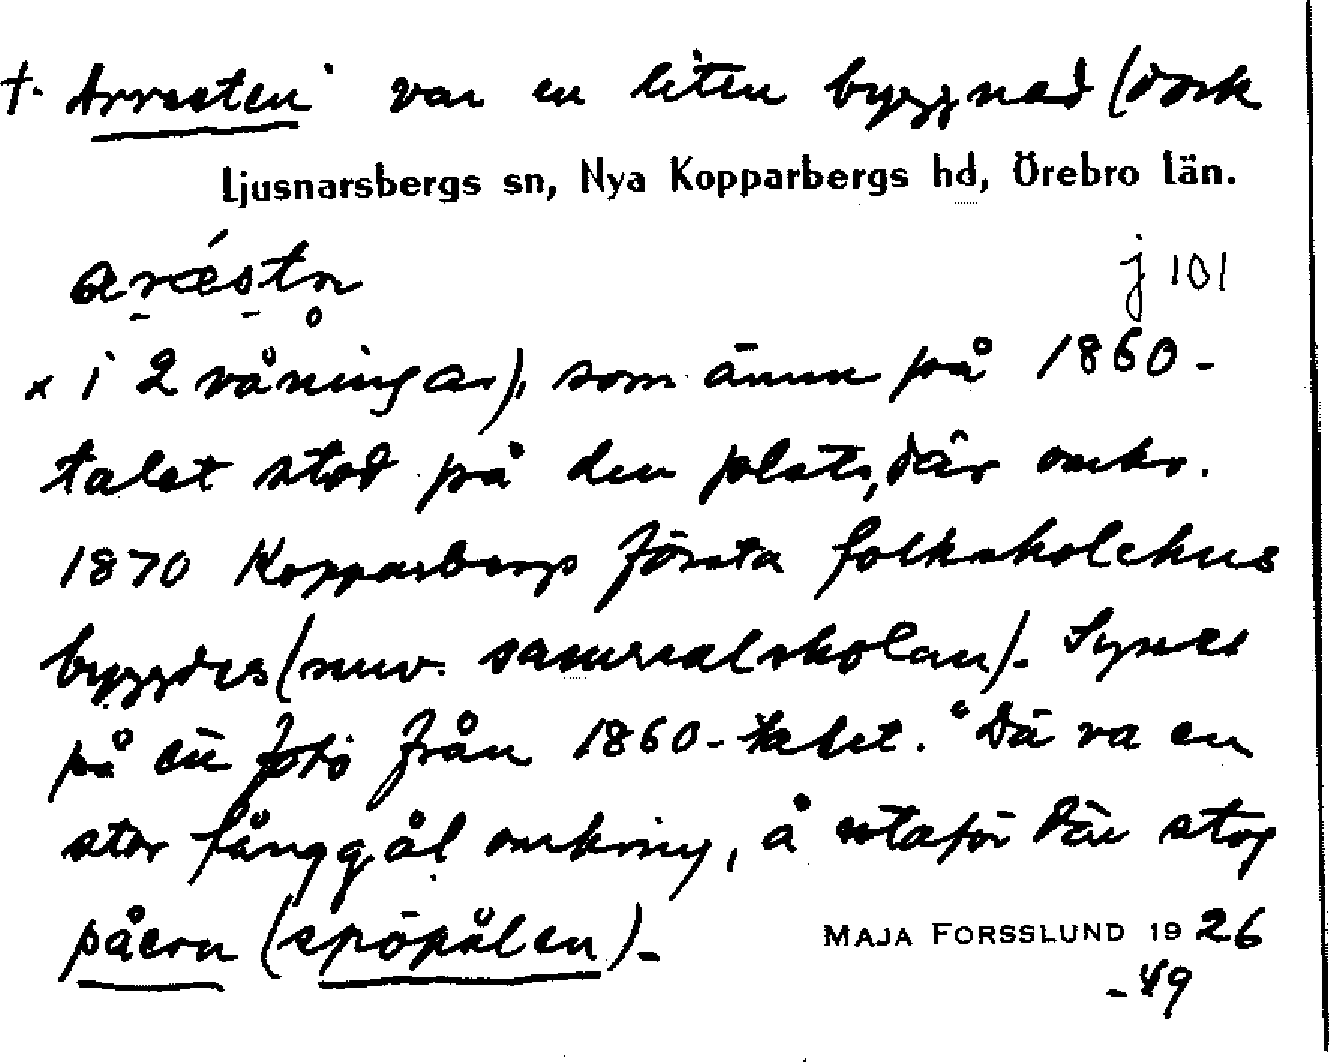 +. Arresten var en liten byggnad (dock
Ljusnarsbergs sn, Nya Kopparbergs hd, Örebro län.
aræ´stn̥
j 101
x i 2 våningar), som ännu på 1860-
talet stod på den plats, där omkr.
1870 Kopparbergs första folkskolehus
byggdes (nuv. samrealskolan). Synes
på en foto från 1860-talet. "Dä va en
stor fånggål omkring, å utaför där stog
påern (spöpålen).
MAJA FORSSLUND 1926
-49